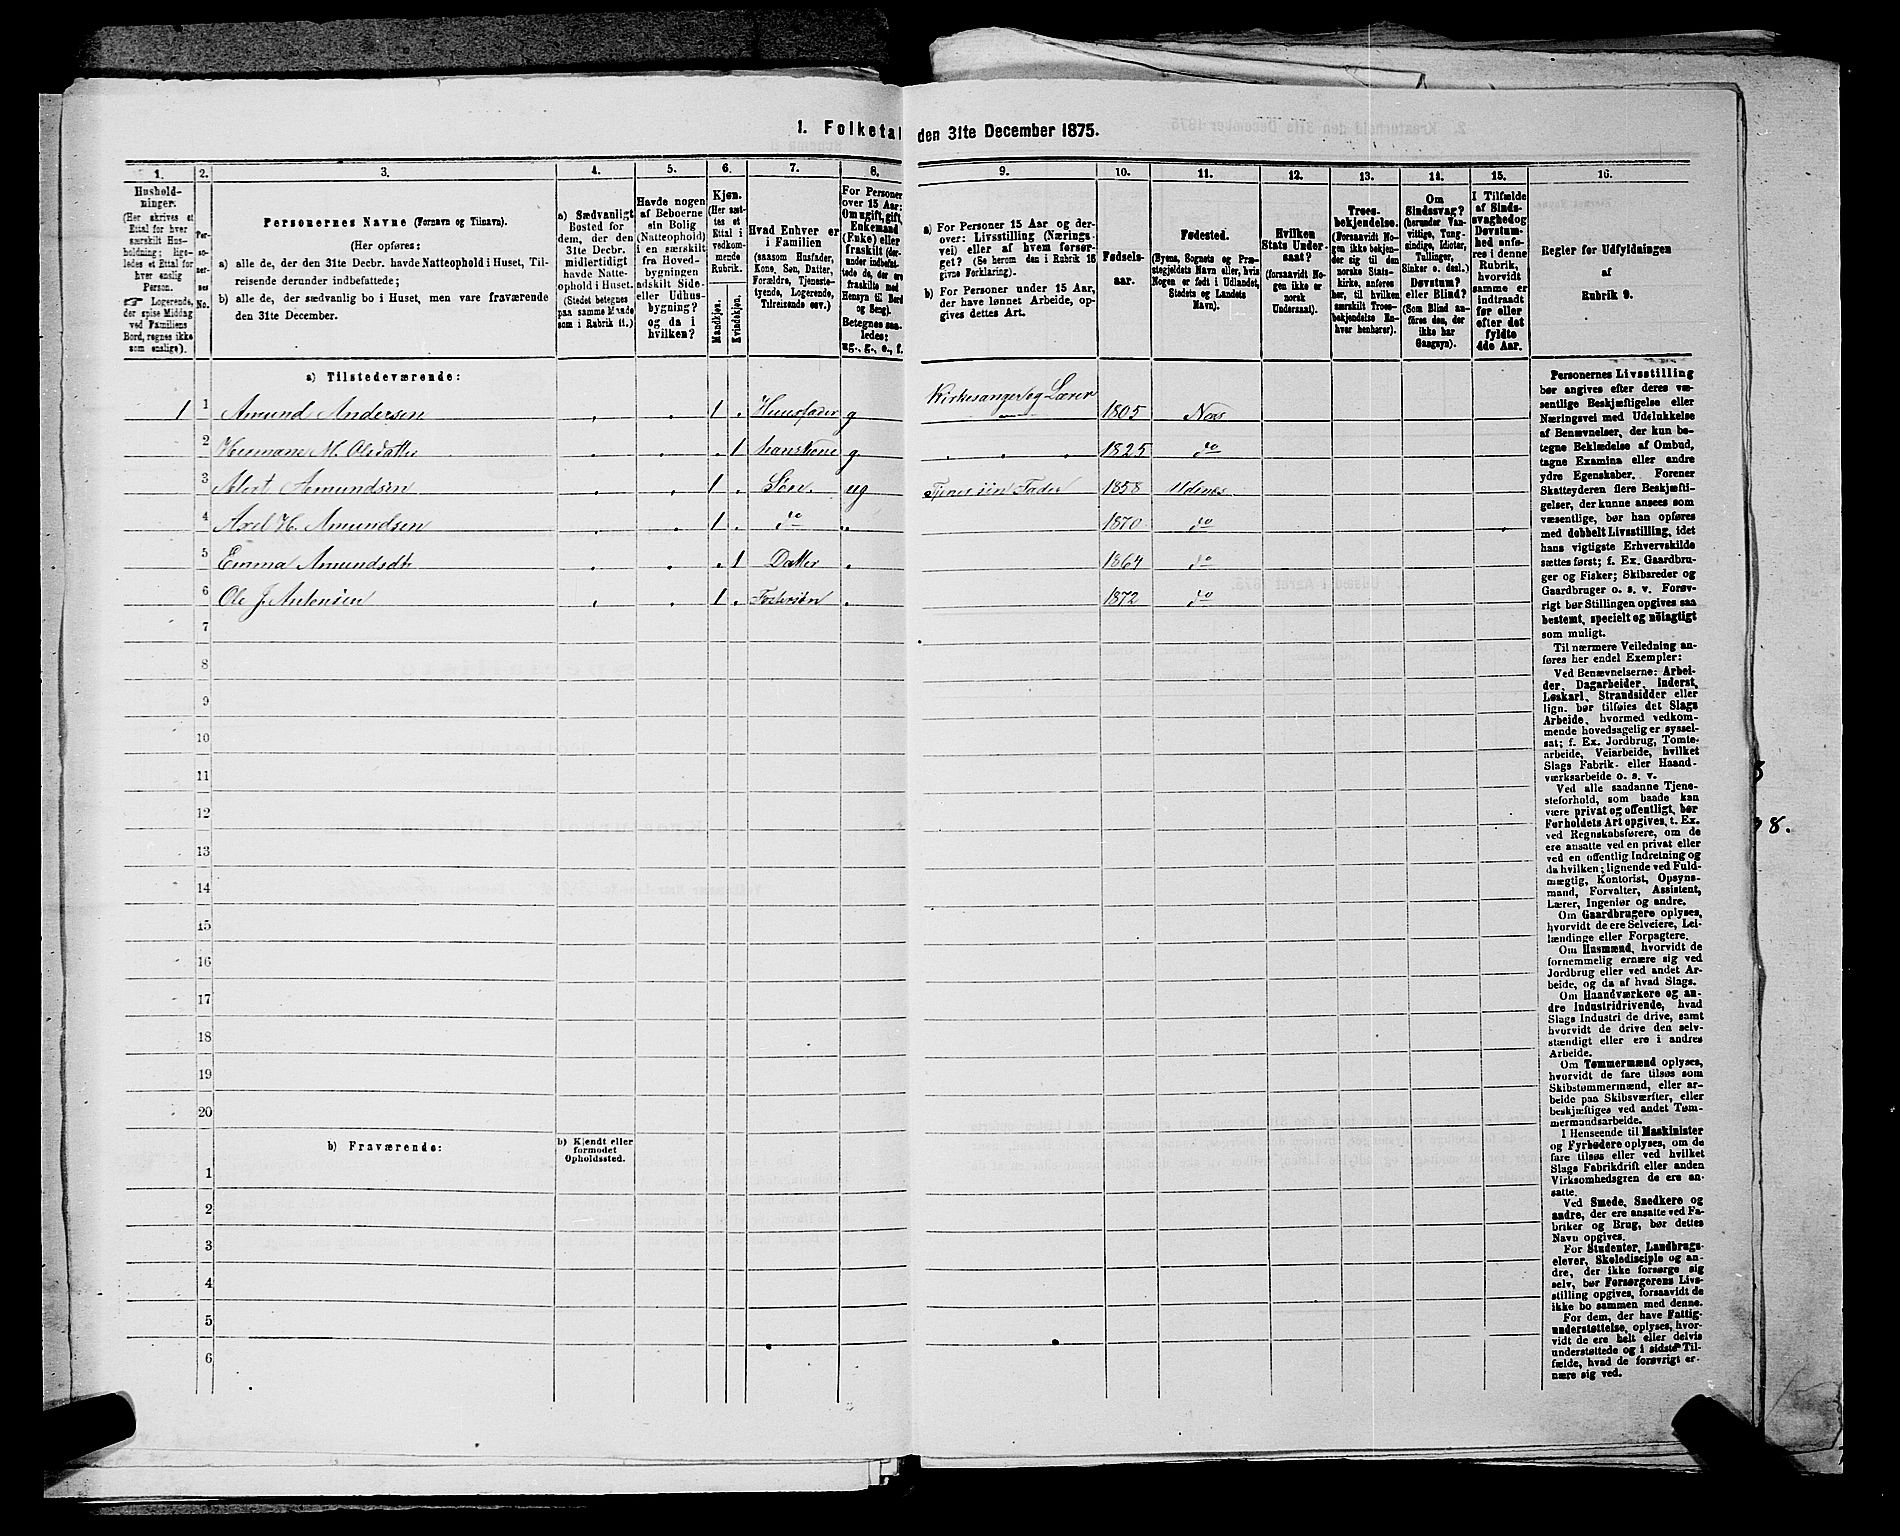 1. Folketal den 31te December 1875.
1.
2.
3.
4.
5.
6.
7.
8.
9.
10.
11.
12.
13.
14.
15.
16.
Hushold-
ninger.
(Her skrives et
Ettal for hver
særskilt Hus-
holdning; lige-
ledes et Ettal for
hver enslig
Person.
☞ Logerende,
der spise Middag
ved Familiens
Bord, regnes ikke
som enslige).
Per-
so-
ner-
nes
No.
Personernes Navne (Fornavn og Tilnavn).
(Her opføres:
a) alle de, der den 31te Decbr. havde Natteophold i Huset, Til-
reisende derunder indbefattede;
b) alle de, der sædvanlig bo i Huset, men vare fraværende
den 31te December.
a) Sædvanligt
Bosted for
dem, der den
31te Decbr.
midlertidigt
havde Natte-
ophold i Huset.
(Stedet betegnes
paa samme Maade
som i Rubrik 11.)
Havde nogen
af Beboerne
sin Bolig
(Natteophold)
i en særskilt
fra Hoved-
bygningen
adskilt Side-
eller Udhus-
bygning?
og da i
hvilken?
Kjøn.
(Her sæt-
tes et
Ettal i
vedkom-
mende
Rubrik.
Mandkjøn.
Kvindekjøn.
Hvad Enhver er
i Familien
(saasom Husfader,
Kone, Søn, Datter,
Forældre, Tjeneste-
tyende, Logerende,
Tilreisende osv.)
For Personer
over 15 Aar:
Om ugift, gift,
Enkemand
(Enke) eller
fraskilt (der-
under indbefat-
tede de, der ere
fraskilte med
Hensyn til Bord
og Seng).
Betegnes saa-
ledes:
ug., g., e., f.
a) For Personer 15 Aar og der-
over: Livsstilling (Nærings-
vei) eller af hvem forsør-
get? (Se herom den i Rubrik 16
givne Forklaring).
b) For Personer under 15 Aar,
der have lønnet Arbeide, op-
gives dettes Art.
Fødsels-
aar.
Fødested.
(Byens, Sognets og Præ-
stegjeldets Navn eller, hvis
Nogen er født i Udlandet,
Stedets og Landets
Navn).
Hvilken
Stats Under-
saat?
(forsaavidt No-
gen ikke er
norsk
Undersaat).
Troes-
bekjendelse.
(Forsaavidt No-
gen ikke bekjen-
der sig til den
norske Stats-
kirke, anføres
her, til hvilken
særskilt Troes-
bekjendelse En-
hver henhører).
Om
Sindssvag?
(herunder Van-
vittige, Tung-
sindige, Idioter,
Tullinger,
Sinker o. desl.)
Døvstum?
eller Blind?
(Som Blind an-
føres den, der
ikke har
Gangsyn).
I Tilfælde
af Sinds-
svaghed og
Døvstum-
hed anfø-
res i denne
Rubrik,
hvorvidt
samme er
indtraadt
før eller
efter det
fyldte
4de Aar.
Regler for Udfyldningen
af
Rubrik 9.
a) Tilstedeværende:
1 1 Amund Andersen 1 Huusfader g Kirkesanger og Lærer 1805 Næs
2 M. Olsdatter 1 hans Kone g 1825 do
3 Albert Amundsen 1 Søn ug Tjener sin Fader 1858 Udenes
4 Axel H. Amundsen 1 do 1870 do
5 Emma Amundsdt 1 Datter 1864 do
6 Ole J. Antonsen 1 Fostersøn 1872 do
7
8
9
10
11
12
13
14
15
16
17
18
19
20
b) Fraværende:
b) Kjendt eller
formodet
Opholdssted.
1
2
3
4
5
6
Personernes Livsstilling
bør angives efter deres væ-
sentlige Beskjæftigelse eller
Næringsvei med Udelukkelse
af Benævnelser, der kun be-
tegne Beklædelse af Ombud,
tagne Examina eller andre
ydre Egenskaber. Forener
Skatteyderen flere Beskjæfti-
gelser, der kunne ansees som
væsentlige, bør han opføres
med dobbelt Livsstilling, idet
hans vigtigste Erhvervskilde
sættes først; f. Ex. Gaardbru-
ger og Fisker; Skibsreder og
Gaardbruger o. s. v. Forøv-
rigt bør Stillingen opgives saa
bestemt, specielt og nöiagtigt
som muligt.
Til nærmere Veiledning an-
føres her endel Exempler:
Ved Benævnelserne: Arbei-
der, Dagarbeider, Inderst,
Løskarl, Strandsidder eller
lign. bør tilføies det Slags
Arbeide, hvormed vedkom-
mende hovedsagelig er syssel-
sat; f. Ex. Jordbrug, Tomte-
arbeide, Veiarbeide, hvilket
Slags Fabrik- eller Haand-
værksarbeide o. s. v.
Ved alle saadanne Tjene-
steforhold, som baade kan
være privat og offentligt, bør
Forholdets Art opgives, t. Ex.
ved Regnskabsførere, om de
ere ansatte ved en privat eller
ved en offentlig Indretning og
da hvilken; lignende ved Fuld-
mægtig, Kontorist, Opsyns-
mand, Forvalter, Assistent,
Lærer, Ingeniør og andre.
Om Gaardbrugere oplyses,
hvorvidt de ere Selveiere, Lei-
lændinge eller Forpagtere.
Om Husmænd, hvorvidt de
fornemmelig ernære sig ved
Jordbrug eller ved andet Ar-
beide, og da af hvad Slags.
Om Haandværkere og an-
dre Industridrivende, hvad
Slags Industri de drive, samt
hvorvidt de drive den selv-
stændigt eller ere i andres
Arbeide.
Om Tømmermænd oplyses,
hvorvidt de fare tilsøs som
Skibstømmermænd, eller ar-
beide paa Skibsværfter, eller
beskjæftiges ved andet Tøm-
mermandsarbeide.
I Henseende til Maskinister
og Fyrbødere oplyses, om de
fare tilsøs eller ved hvilket
Slags Fabrikdrift eller anden
Virksomhedsgren de ere an-
satte.
Ved Smede, Snedkere og
andre, der ere ansatte ved Fa-
briker og Brug, bør dettes
Navn opgives.
For Studenter, Landbrugs-
elever, Skoledisciple og an-
dre, der ikke forsørge sig
selv, bør Forsørgerens Livs-
stilling opgives, forsaavidt de
ikke bo sammen med denne.
For dem, der have Fattig-
understøttelse, oplyses, hvor-
vidt de ere helt eller delvis
understøttede og i sidste Til-
fælde, hvad de forøvrigt er-
nære sig ved.
8.